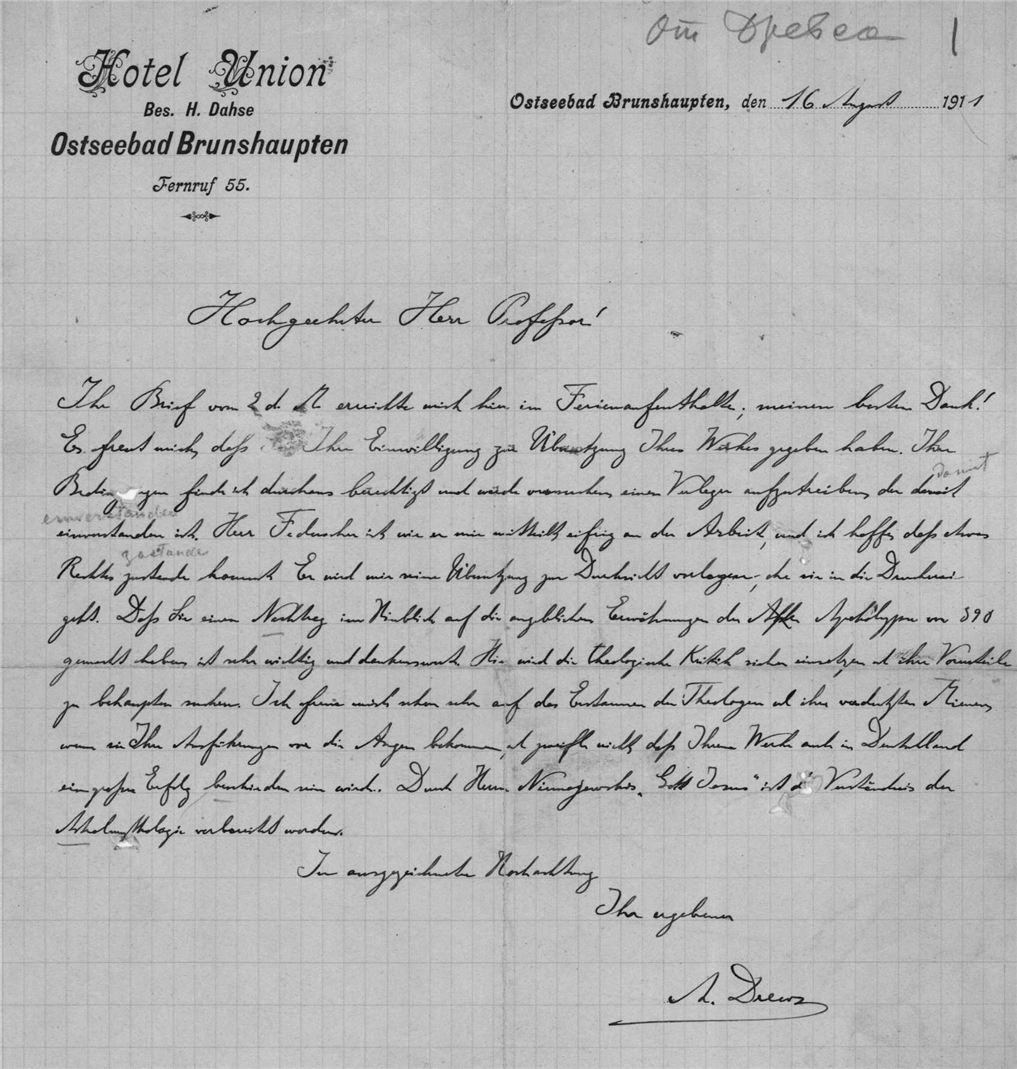 От Древса
Hotel Union
Bes. H. Dahse
Ostseebad Brunshaupten
Fernruf 55.
Ostseebad Brunshaupten, den 16 August 1911
Hochgeehrter Herr Professor!
Ihr Brief vom 2 d. M erreichte mich hier im Ferienaufenthalte; meinen besten Dank!
Es freut mich, daß Ihre Einwilligung zur Übersetzung Ihres Werkes gegeben haben. Ihre
damit
Bedingungen finde ich durchaus berechtigt und werde versuchen einen Verleger aufzutreiben, der damit
einverstanden
einverstanden ist. Herr ist wie er mir mitteilt eifrig an der Arbeit, und ich hoffe, daß etwas
zustande
Rechtes zustande kommt. Er wird mir seine Übersetzung zur Durchsicht vorlegen, ehe sie in die Druckerei
geht. Daß Sie einen Nachtrag im Hinblick auf die angeblichen Erwähnungen der Apokalypse vor 390
gemacht haben ist sehr wichtig und dankenswert. Hier wird die theologische Kritik sicher einsetzen, ihre Vorurteile
zu behaupten suchen. Ich freue mich schon sehr auf das Erstaunen der Theologen ihre verdutzten Mienen,
wenn sie Ihre Ausführungen vor die Augen bekommen, zweifle nicht, daß Ihrem Werke auch in Deutschland
ein großer Erfolg beschieden sein wird. Durch Herrn Niemojewskis „Gott Jesus" ist das Verständnis der
Astralmythologie vorbereitet worden.
In ausgezeichneter Hochachtung
Ihr ergebener
A. Drews